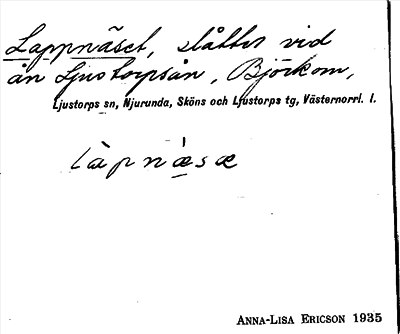 Lappnäset, slåtter vid
ån Ljustorpsån, Björkom,
Ljustorps sn, Njurunda, Sköns och Ljustorps tg, Västernorrl. l.
làpnä̀sæ
ANNA-LISA ERICSON 1935